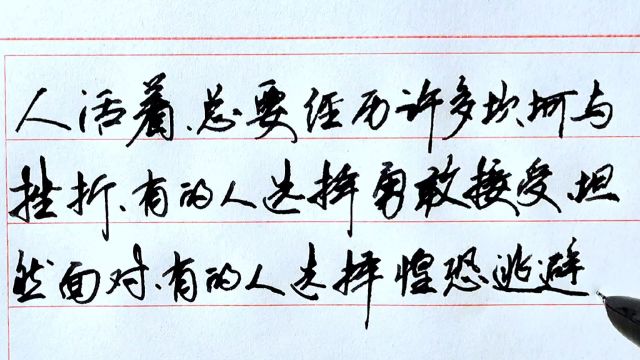 人活着、总要经历许多坎坷与
挫折、有的人选择勇敢接受、坦
然面对、有的人选择惶恐逃避